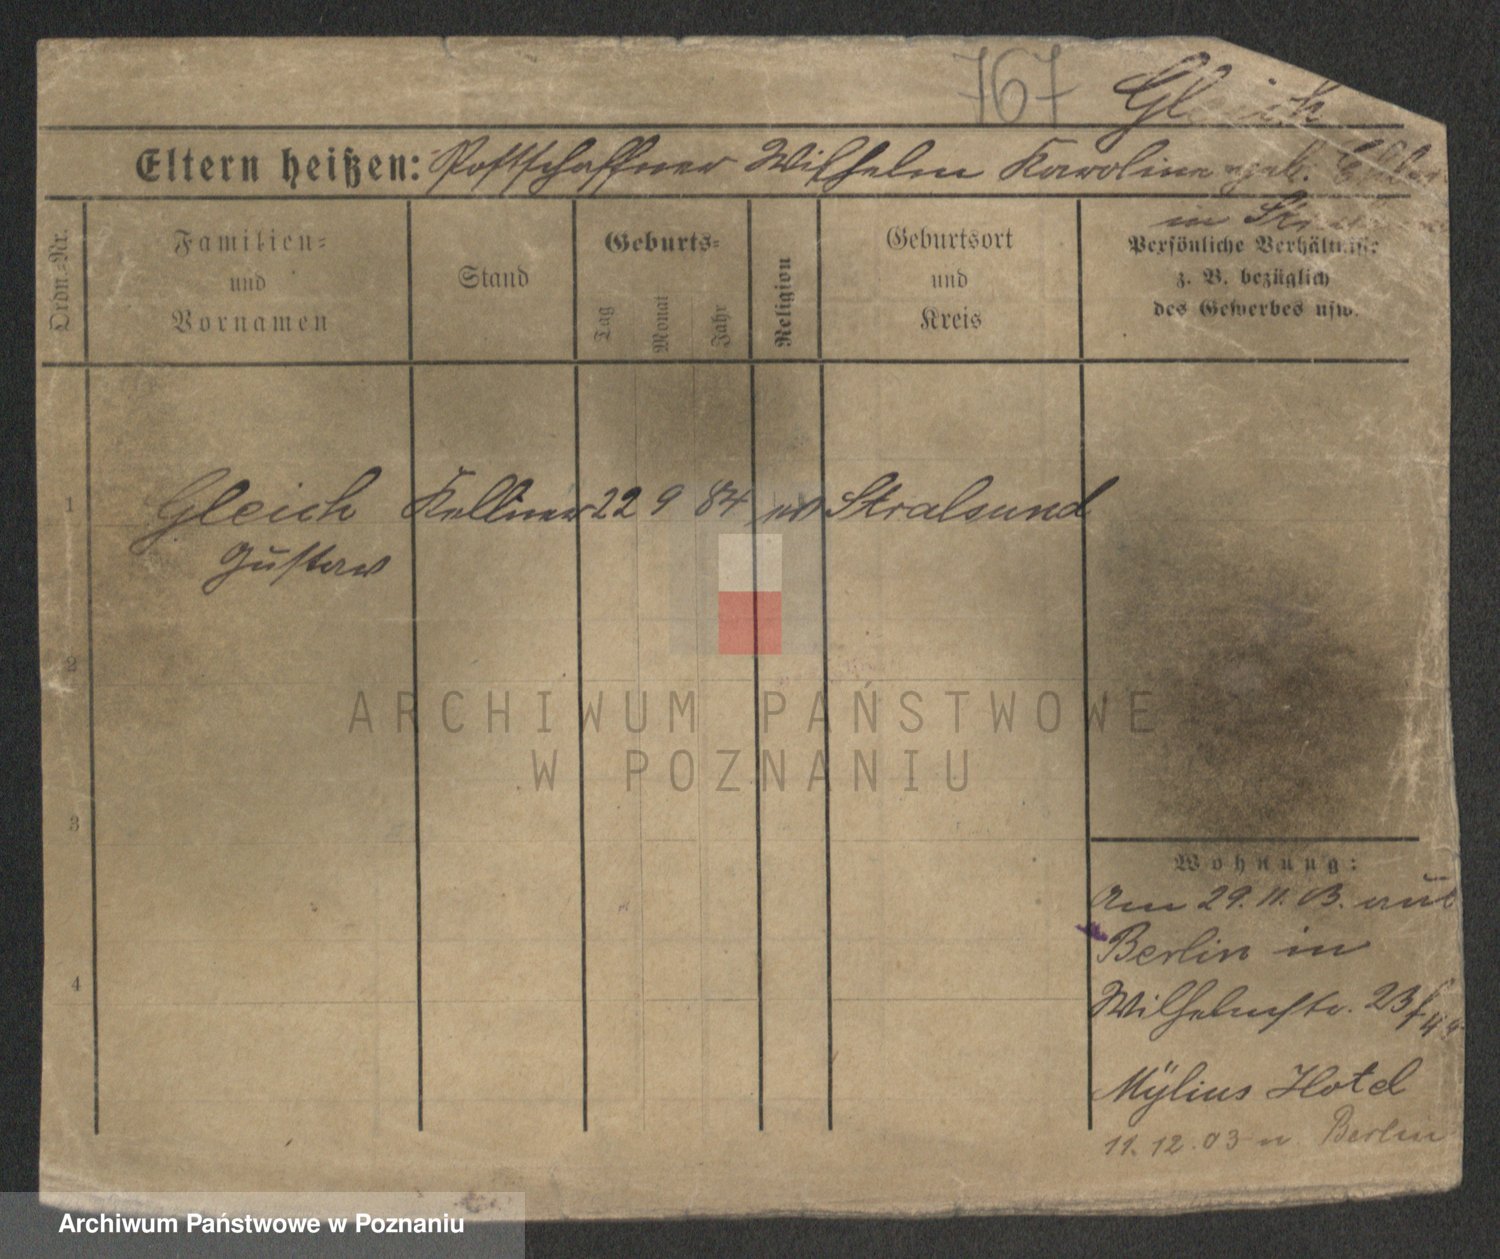 767 Gleich
Eltern heißen: Postschaffner Wilhelm Karoline geb.
in
Ordn.-Nr.
Familien-
und
Vornamen
Stand
Geburts-
Tag
Monat
Jahr
Religion
Geburtsort
und
Kreis
Persönliche Verhältnisse
z. B. bezüglich
des Gewerbes usw.
1 Gleich Kellner 22 9 84 ev Stralsund
Gustav
2
3
4
Wohnung:
Am 29. 11. 03. aus
Berlin in
Wilhelmstr. 23
Mÿlius Hotel
11. 12. 03 n Berlin
ARCHIWUM PAŃSTWOWE
W POZNANIU
Archiwum Państwowe w Poznaniu